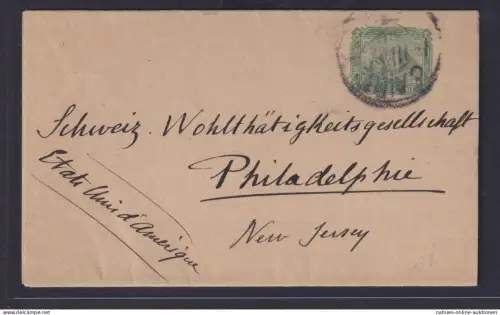 Schweiz. Wohlthätigkeitsgesellschaft
Philadelphie
New Jersey
Etats Unis d'Amérique
© nahues-online-auktionen
www.delcampe.net